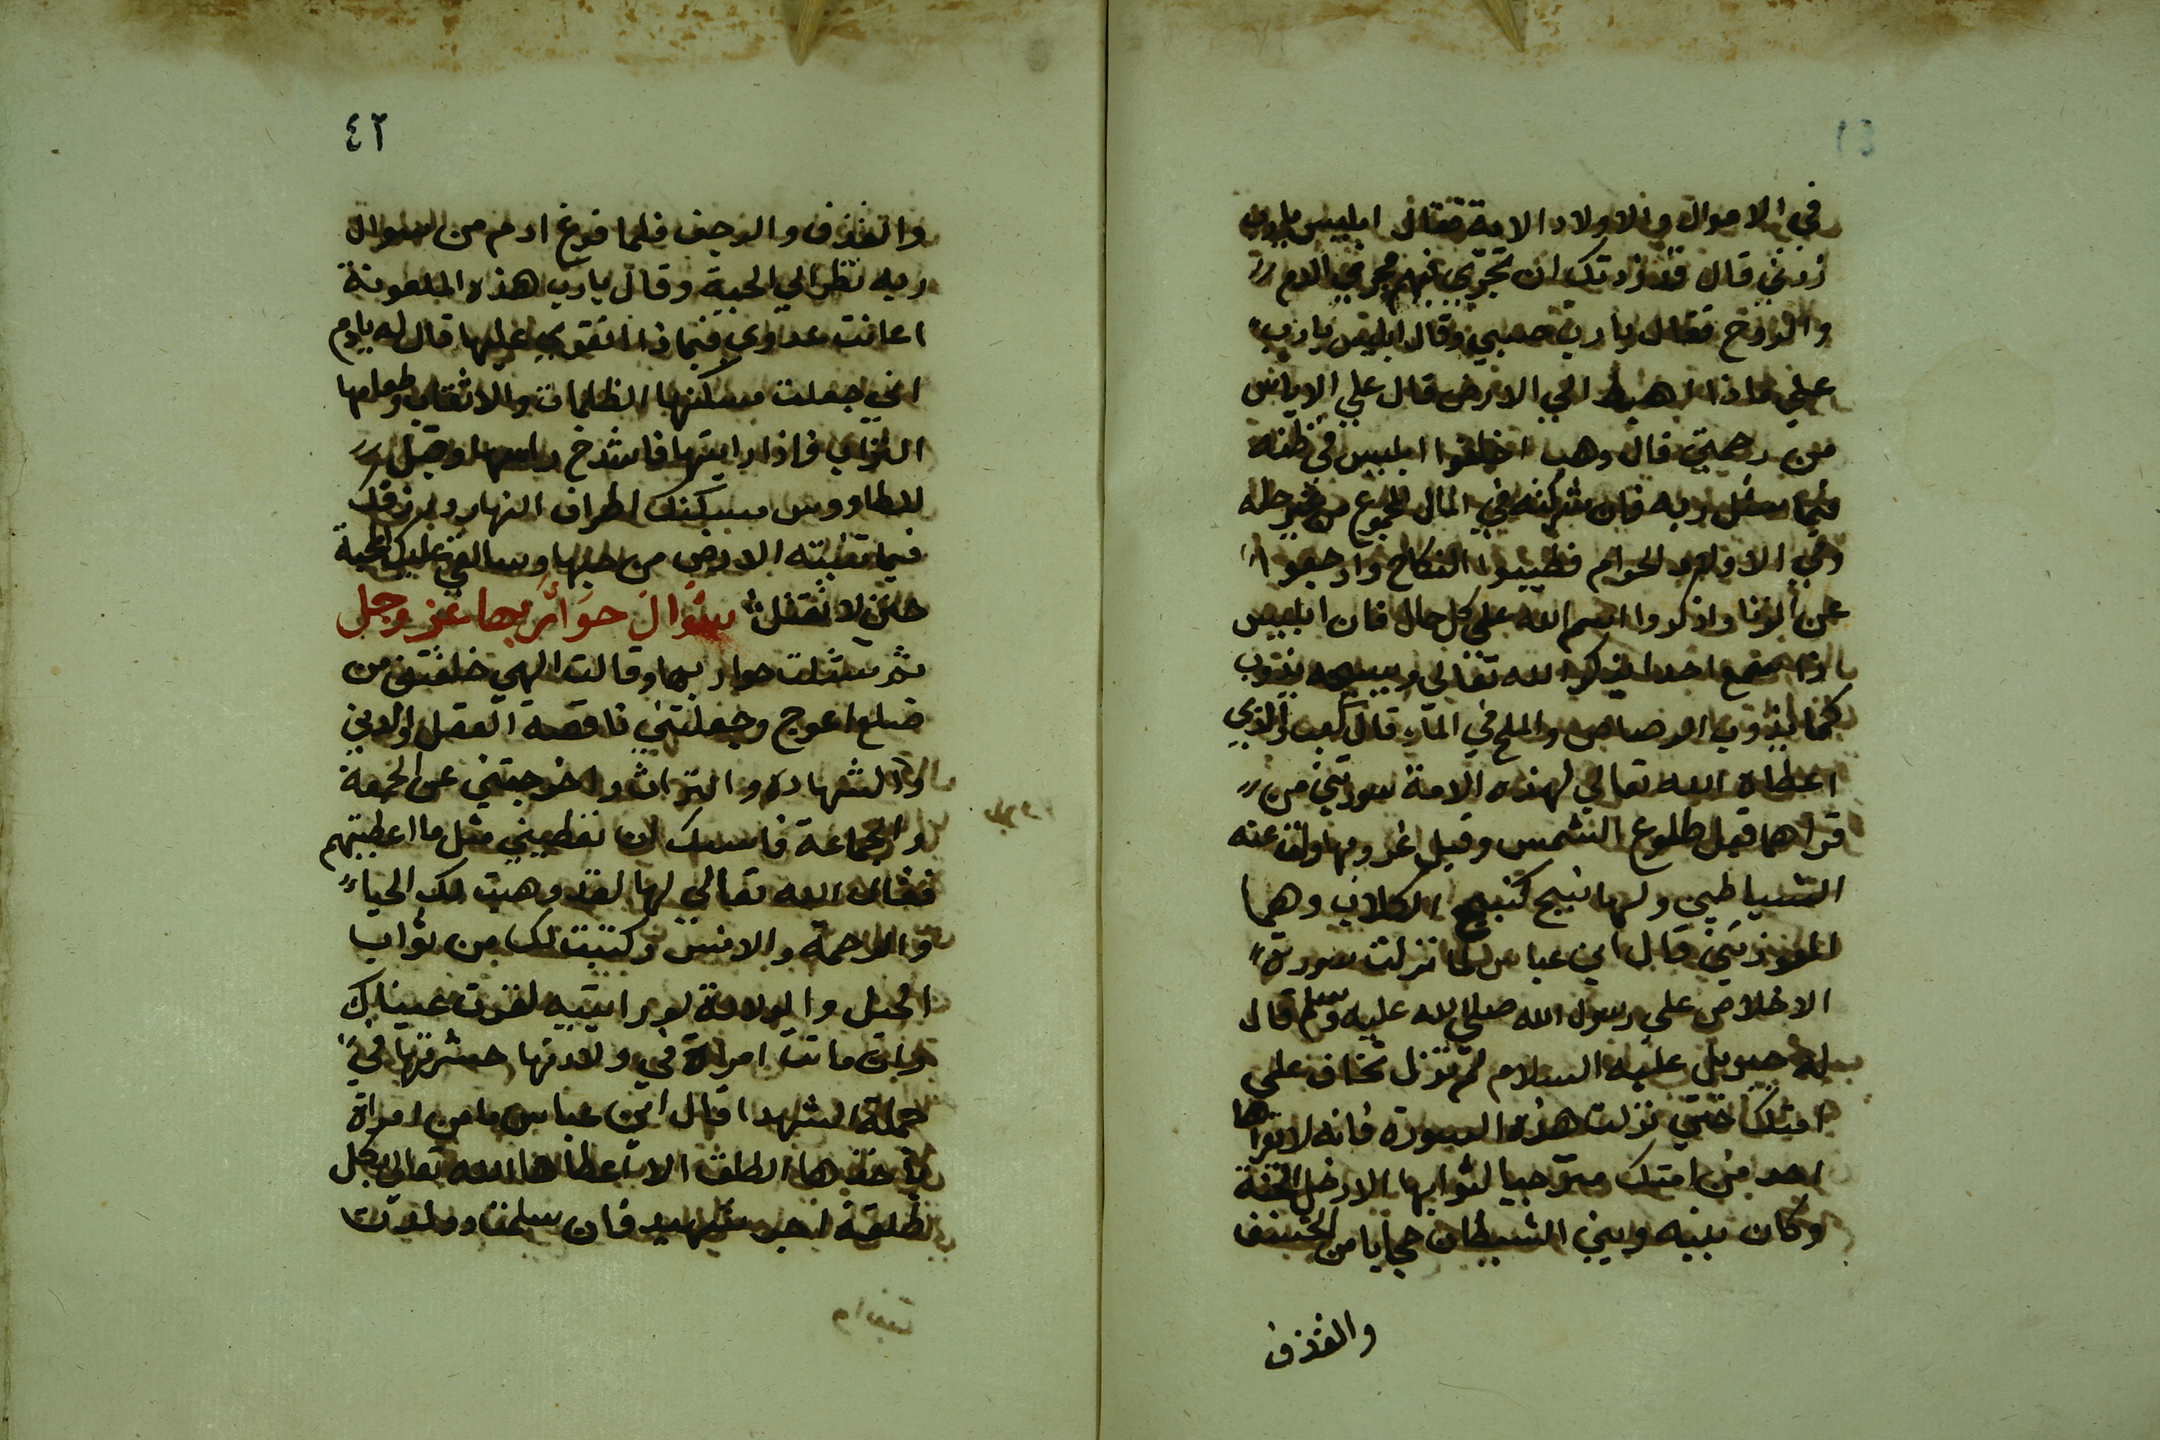 في الاموال والاولاد الاية فقال ابليس يارب
زدني قال قد زدتك ان تجري منهم مجري الدم
والروح فقال يا رب حسبي وقال ابليس يا رب
علي ماذا اهبط الي الارض قال علي الاياس
من رحمتي قال وهب اخلفوا ابليس في ظنه
فيما سئل ربه فان شركته في المال المجموع من غير حله
وفي الاولاد الحرام فطيبوا النكاح وارجعوا
عن الزنا واذكروا اسم الله علي كل حال فان ابليس
اذا سمع احدا يذكر الله تعالي ويسبحه يذوب
كما يذوب الرصاص والملح في الماء قال كعب والذي
اعطاه الله تعالي لهذه الامة سورتين من
قراهما قبل طلوع الشمس وقبل غروبها ولت عنه
الشياطين ولها نبيح كنبيح الكلاب وهما
المعوذتين قال ابن عباس لما نزلت سورة
الاخلاص علي رسول الله صلي الله عليه وسلم قال
له جبريل عليه السلام لم تزل تخاف علي
امتك حتي نزلت هذه السورة فانه لا يقراها
احد من امتك مترجيا لثوابها الا دخل الجنة
وكان بينه وبين الشيطان حجابا من الخسف
والقذف
٤٢
والقذف والرجف فلما فرغ ادم من السوال
ربه نظر الي الحية وقال يا رب هذه الملعونة
اعانت عداوي فبماذا اتقوي عليها قال له يادم
اني جعلت مسكنها الظلمات والاثقاب وطعامها
التراب فاذا رايتها فاشدخ راسها وقيل
للطاووس مسكنك اطراف النهار ورزقك
فيما تنبته الارض من حبها وسالقي عليك المحبة
حتي لا تقتل سؤال حواء ربها عز وجل
ثم سئلت حوا ربها وقالت الهي خلقتني من
ضلع اعوج وجعلتني ناقصة العقل والدين
والشهادة والتراث واخرجتني عن الجمعة
والجماعة فاسئلك ان تعطيني مثل ما اعطيتهم
فقال الله تعالي لها لقد وهبت لك الحيا
والرحمة والانس وكتبت لك من ثواب
الحبل والولادة لو رايتيه لقرت عيناك
وان ماتت امراة في ولادتها حشرتها في
جملة الشهدا قال ابن عباس ما من امراة
ياخذها الطلق الا اعطاها الله تعالي بكل
طلقة اجر شهيد فان سلمت وولدت